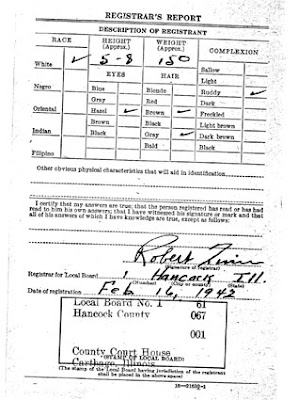 REGISTRAR'S REPORT
DESCRIPTION OF REGISTRANT
RACE HEIGHT (Approx.) WEIGHT (Approx.) COMPLEXION
White ✓ 5-8 150 Sallow
EYES HAIR Light
Negro Blue Blonde Ruddy ✓
Gray Red Dark
Oriental Hazel ✓ Brown ✓ Freckled
Brown Black Light brown
Indian Black Gray ✓ Dark brown ✓
Bald Black
Filipino
Other obvious physical characteristics that will aid in identification
I certify that my answers are true; that the person registered has read or has had
read to him his own answers; that I have witnessed his signature or mark and that
all of his answers of which I have knowledge are true, except as follows:
Robert
(Signature of registrar)
Registrar for Local Board 1 Hancock Ill.
(Number) (City or county) (State)
Date of registration Feb 16, 1942
Local Board No. 1 61
Hancock County 067
001
County Court House
(STAMP OF LOCAL BOARD)
Carthage, Illinois
(The stamp of the Local Board having jurisdiction of the registrant
shall be placed in the above space)